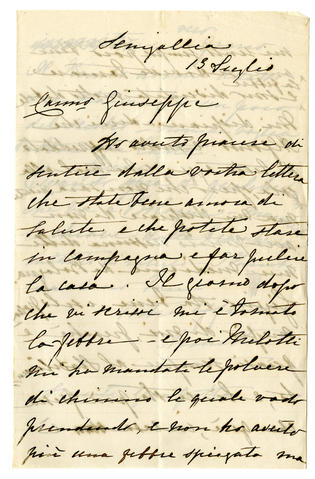 Senigallia
13 Luglio
Carmo Giuseppe
Ho avuto piacere di
sentire dalla vostra lettera
che state bene ancora di
salute e che potete stare
in campagna e far pulire
la casa. Il giorno dopo
che vi scrissi mi è tornata
la febbre - e poi Melotti
mi ho mandate le polvere
di chinino le quale vado
prendendo, e non ho avuto
più una febbre spiegata ma